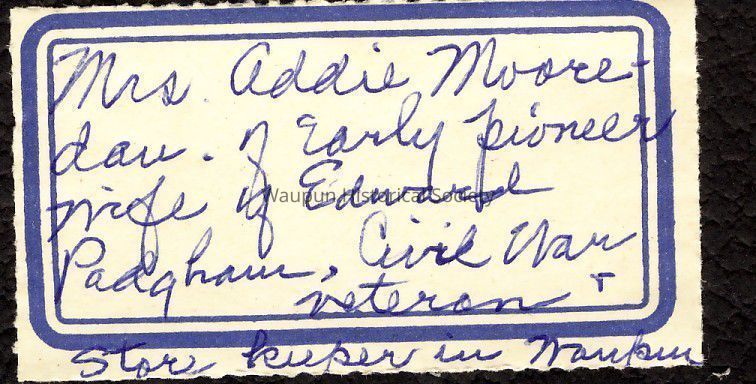 Mrs. Addie Moore-
dau. of Early pioneer
wife of Edward
Waupun Historical Society
Padgham, Civil War
veteran +
Store keeper in Waupun